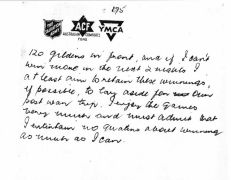 195
THE SALVATION ARMY
ACF
AUSTRALIAN COMFORTS
FUND
YMCA
120 gildens in front, and if I can't
win more in the next 2 weeks I
at least aim to retain these winnings,
if possible, to lay aside for our
post war trip. I enjoy the games
very much and must admit that
I entertain no qualms about winning
as much as I can.